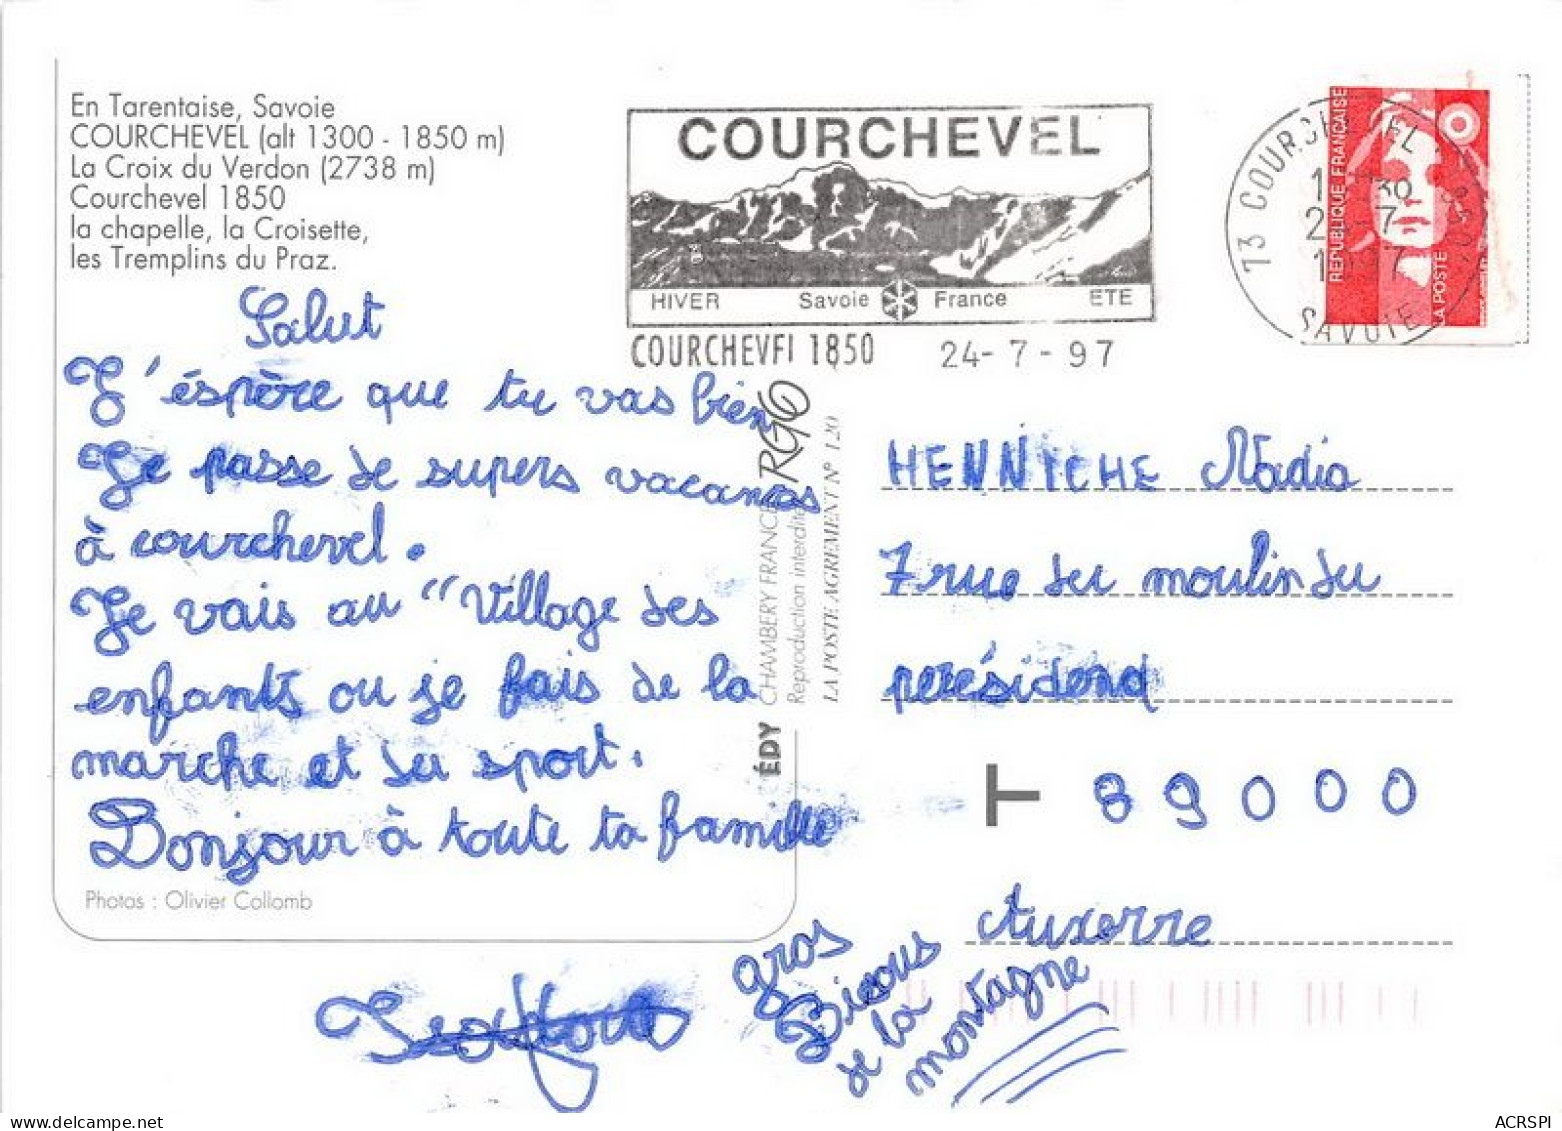 En Tarentaise, Savoie
COURCHEVEL (alt 1300 - 1850 m)
La Croix du Verdon (2738 m)
Courchevel 1850
la chapelle, la Croisette,
les Tremplins du Praz.
Salut
J'éspère que tu vas bien
Je passe de supers vacances
à courchevel.
Je vais au "Village des
enfants ou je fais de la
marche et du sport.
Bonjour à toute ta famille
Photos : Olivier Collomb
gros
Bisous
de la
montagne
COURCHEVEL
HIVER Savoie France ETE
COURCHEVEL 1850 24-7-97
73 COURCHEVEL
SAVOIE
REPUBLIQUE FRANÇAISE
LA POSTE
ÉDY CHAMBERY FRANCE
Reproduction interdite
LA POSTE AGREMENT N° 120
HENNICHE Nadia
7 rue du moulin du
perésidend
T 89000
Auxerre
ACRSPI